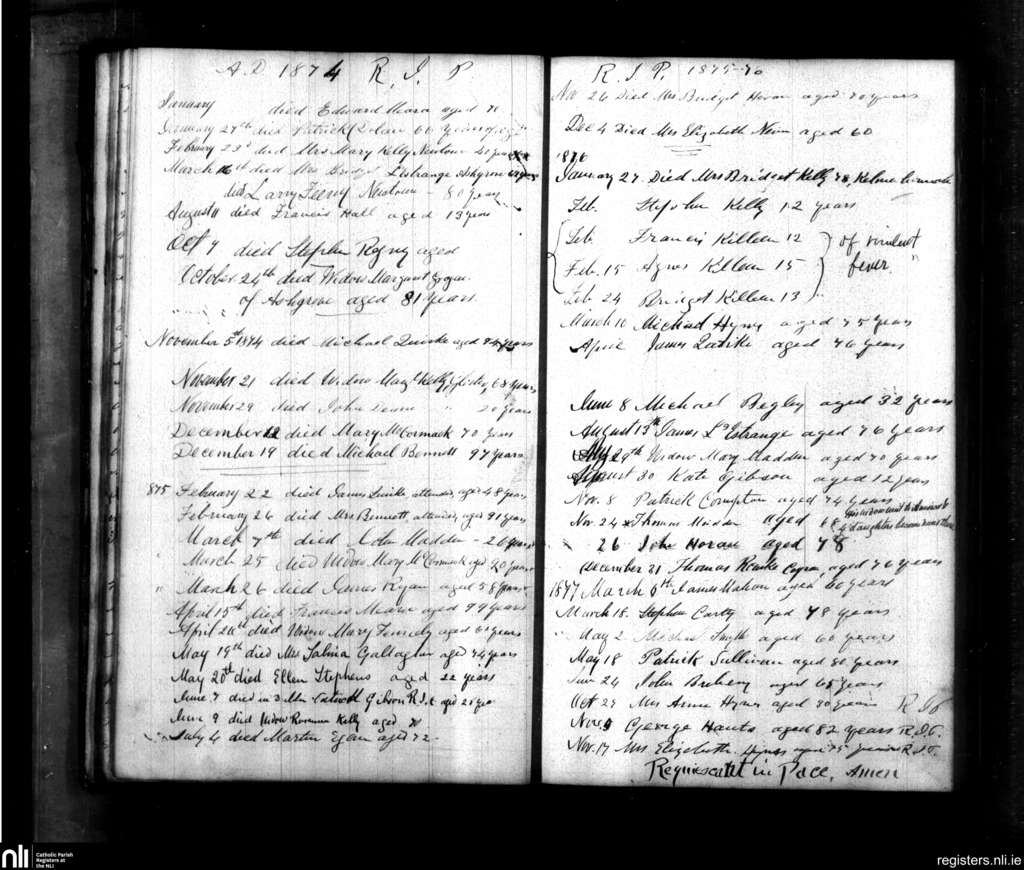 A.D 1874 R. I. P.
January died Edward Meara aged 70
January 27th died Patrick Dolan 66 years of age
February 23d died Mrs Mary Kelly Newtown 40 years
March 16th died Mrs Bridget L'estrange Ashgrove
died Larry Feeny Newtown - 80 years
August 11 died Francis Hall aged 13 years
Oct 9 died Stephen Rogny aged
October 24th died Widow Margaret Grogan
of Ashgrove aged 81 years
November 5th 1874 died Michael Quirke aged years
November 21 died Widow Margt Kelly, 68 years
November 29 died John Dunne " 20 years
December 12 died Mary McCormack 70 years
December 19 died Michael Bennett 97 years
875 February 22 died James Quirke attended, aged 48 years
February 26 died Mrs Bennett, attended, aged 91 years
March 7th died John Madden - 26 years
March 25 died Widow Mary McCormack aged 90 years
" March 26 died James Regan aged 58 years
April 15th died Francis Meara aged 99 years
April 20th died Widow Mary Fennely aged 61 years
May 19th died Mrs Sabina Gallagher aged 74 years
May 20th died Ellen Stephens aged 22 years
June 7 died in Dublin R.I.C aged 21 yrs
June 9 died Widow Rosanna Kelly aged
July 4 died Martin Egan aged 72 -
R. I. P. 1875-76
Nov 26 Died Mrs Bridget Horan aged 70 years
Dec 4 Died Mrs Elizabeth Nevin aged 60
1876
January 27. Died Mrs Bridget Kelly 78,
Feb. Stephen Kelly 12 years
Feb. Francis Killeen 12
Feb. 15 Agnes Killeen 15
of virulent fever.
Feb 24 Bridget Killeen 13
March 10 Michael Hynes aged 75 years
April James Quirke aged 76 years
June 8 Michael Begley aged 32 years
August 13th James L'Estrange aged 76 years
29th Widow Mary Madden aged 70 years
August 30 Kate Gibson aged 12 years
Nov. 8 Patrick Compton aged 74 years
Nov. 24 Thomas Madden aged 68
his widow went to America & 4 daughters became nuns there
26 John Horan aged 78
December 31 Thomas Rourke aged 76 years
1877 March 6th James Mahon aged 60 years
March 18. Stephen Carty aged 78 years
May 2 Michael Smyth aged 60 years
May 18 Patrick Sullivan aged 80 years
Jun 24 John Breheny aged 65 years
Oct 29 Mrs Anne Hynes aged 80 years R I P
Nov 4 George Hants aged 82 years R.I.P.
Nov. 17 Mrs Elizabeth Hynes aged 75 years R.I.P.
Requiescant in Pace, Amen
nli
Catholic Parish
Registers at
the NLI
registers.nli.ie